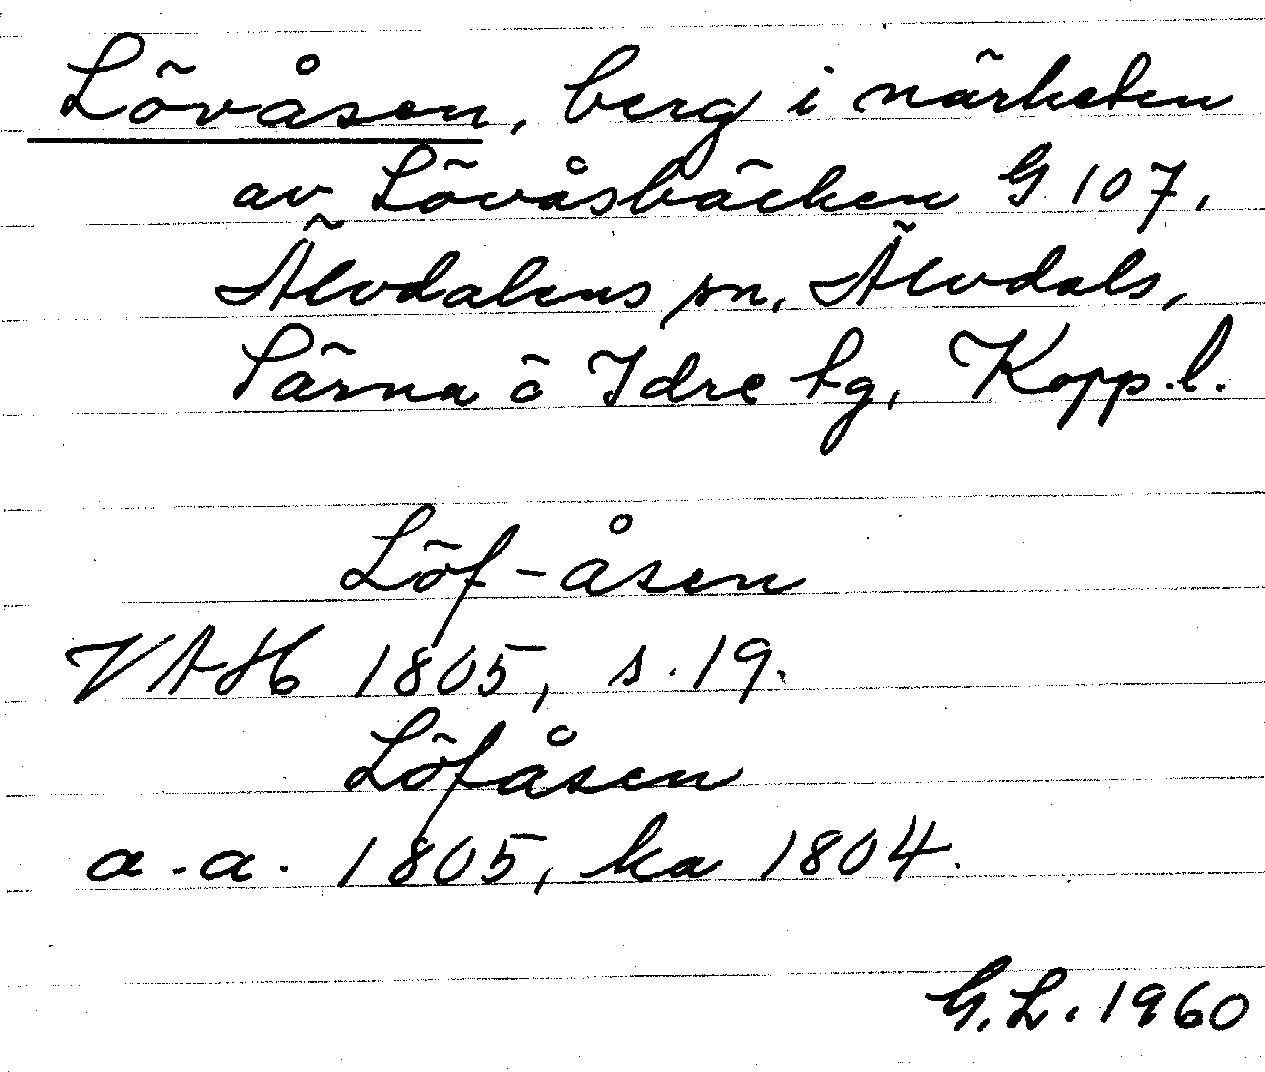 Lövåsen, berg i närheten
av Lövåsbäcken G 107,
Älvdalens sn, Älvdals,
Särna ö Idre tg, Kopp. l.
Löf-åsen
VAH 1805, s. 19.
Löfåsen
a. a. 1805, ka 1804.
G. L. 1960